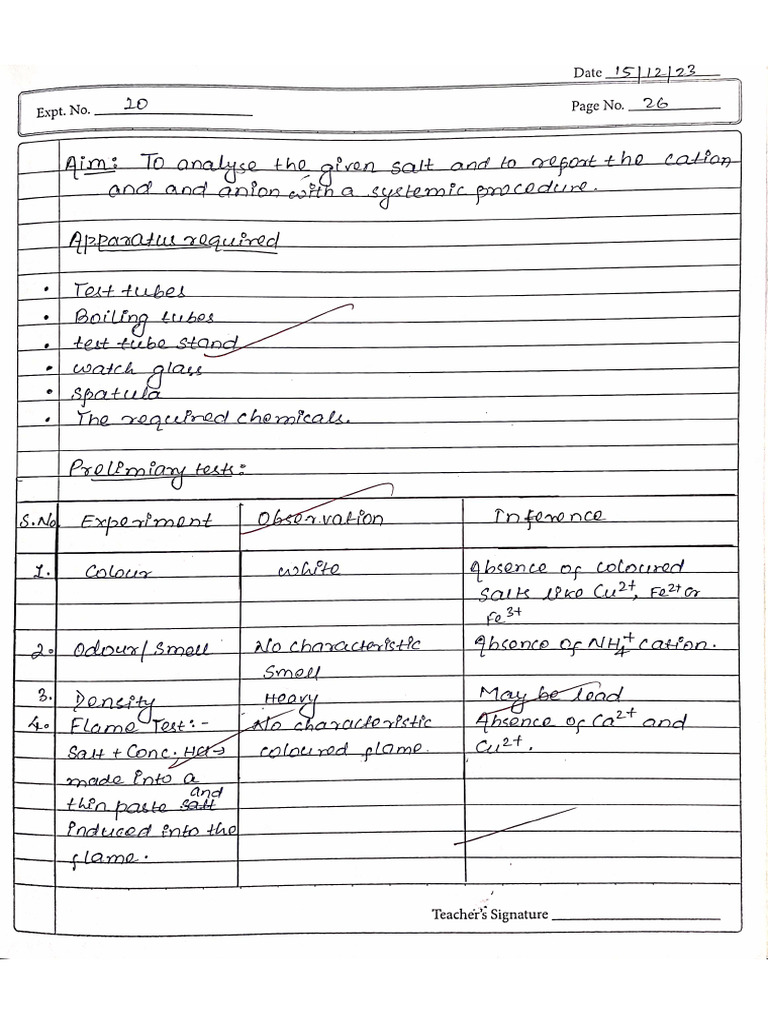 Date 15/12/23
Expt. No. 20
Page No. 26
Aim: To analyse the given salt and to report the cation
and and anion with a systemic procedure.
Apparatus required
• Test tubes
• Boiling tubes
• test tube stand
• watch glass
• spatula
• The required chemicals.
Prelimiary tests:
S.No Experiment Observation Inference
1. Colour white Absence of coloured
salts like Cu2+, Fe2+ or
Fe3+
2. Odour/Smell No characteristic Absence of NH4+ cation.
Smell
3. Density Heavy May be lead
4. Flame Test:- No characteristic Absence of Ca2+ and
Salt + Conc. HCl→ coloured flame. Cu2+.
made into a
thin paste salt and
induced into the
flame.
Teacher's Signature